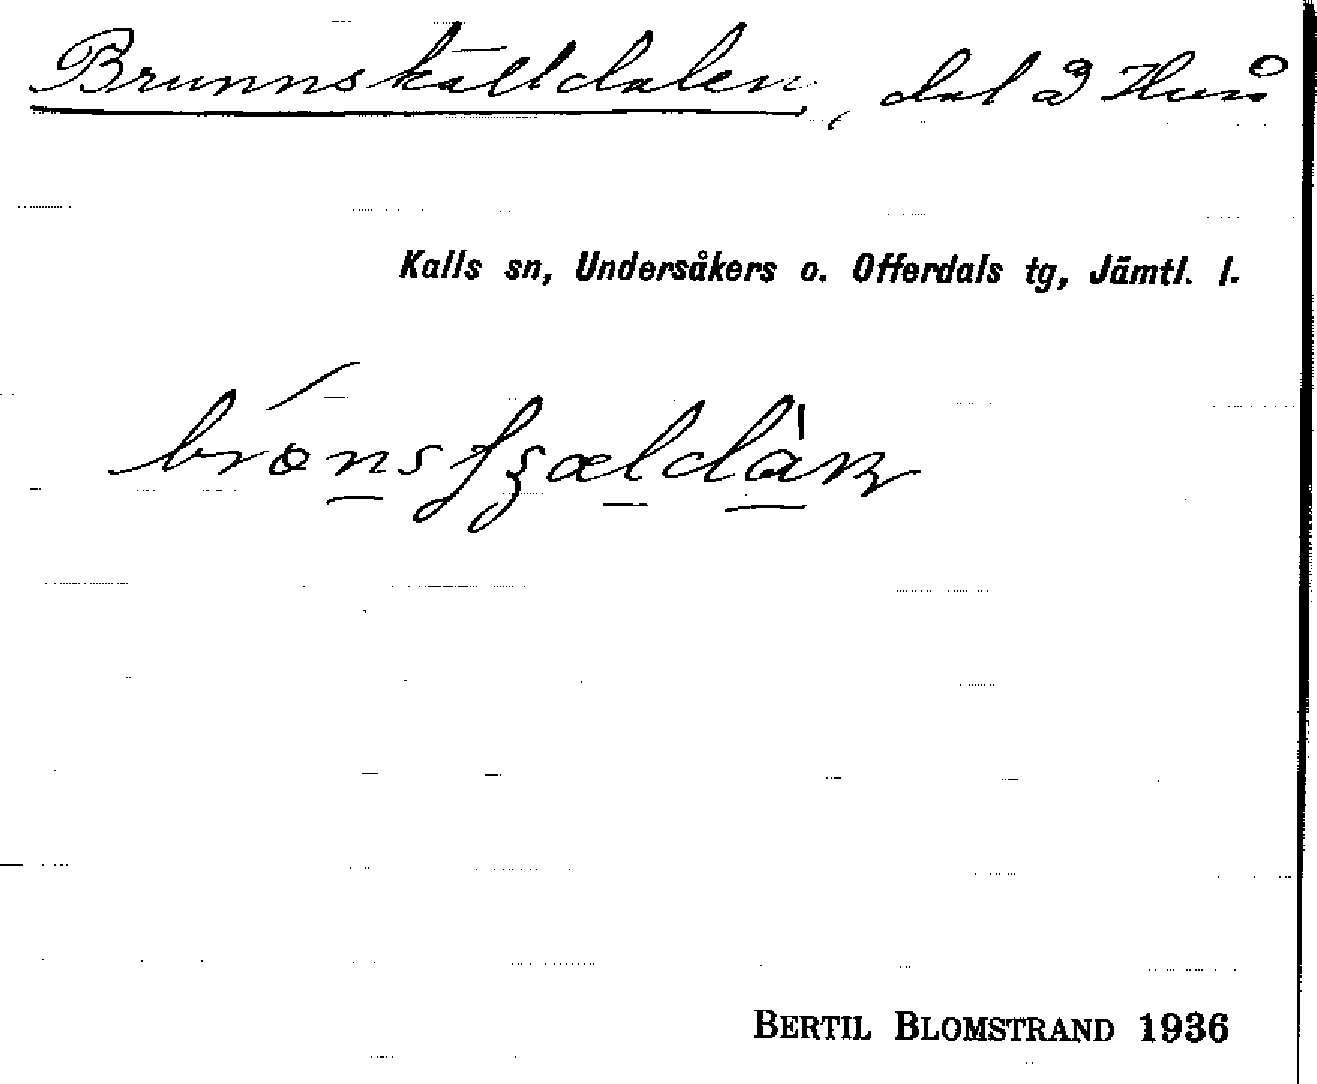 Brunnskälldalen, dal å Huså
Kalls sn, Undersåkers o. Offerdals tg, Jämtl. l.
BERTIL BLOMSTRAND 1936